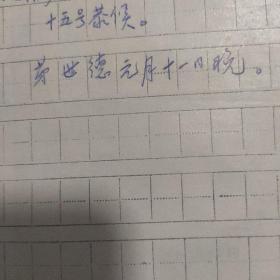 十五号恭候。
弟世德元月十一日晚。